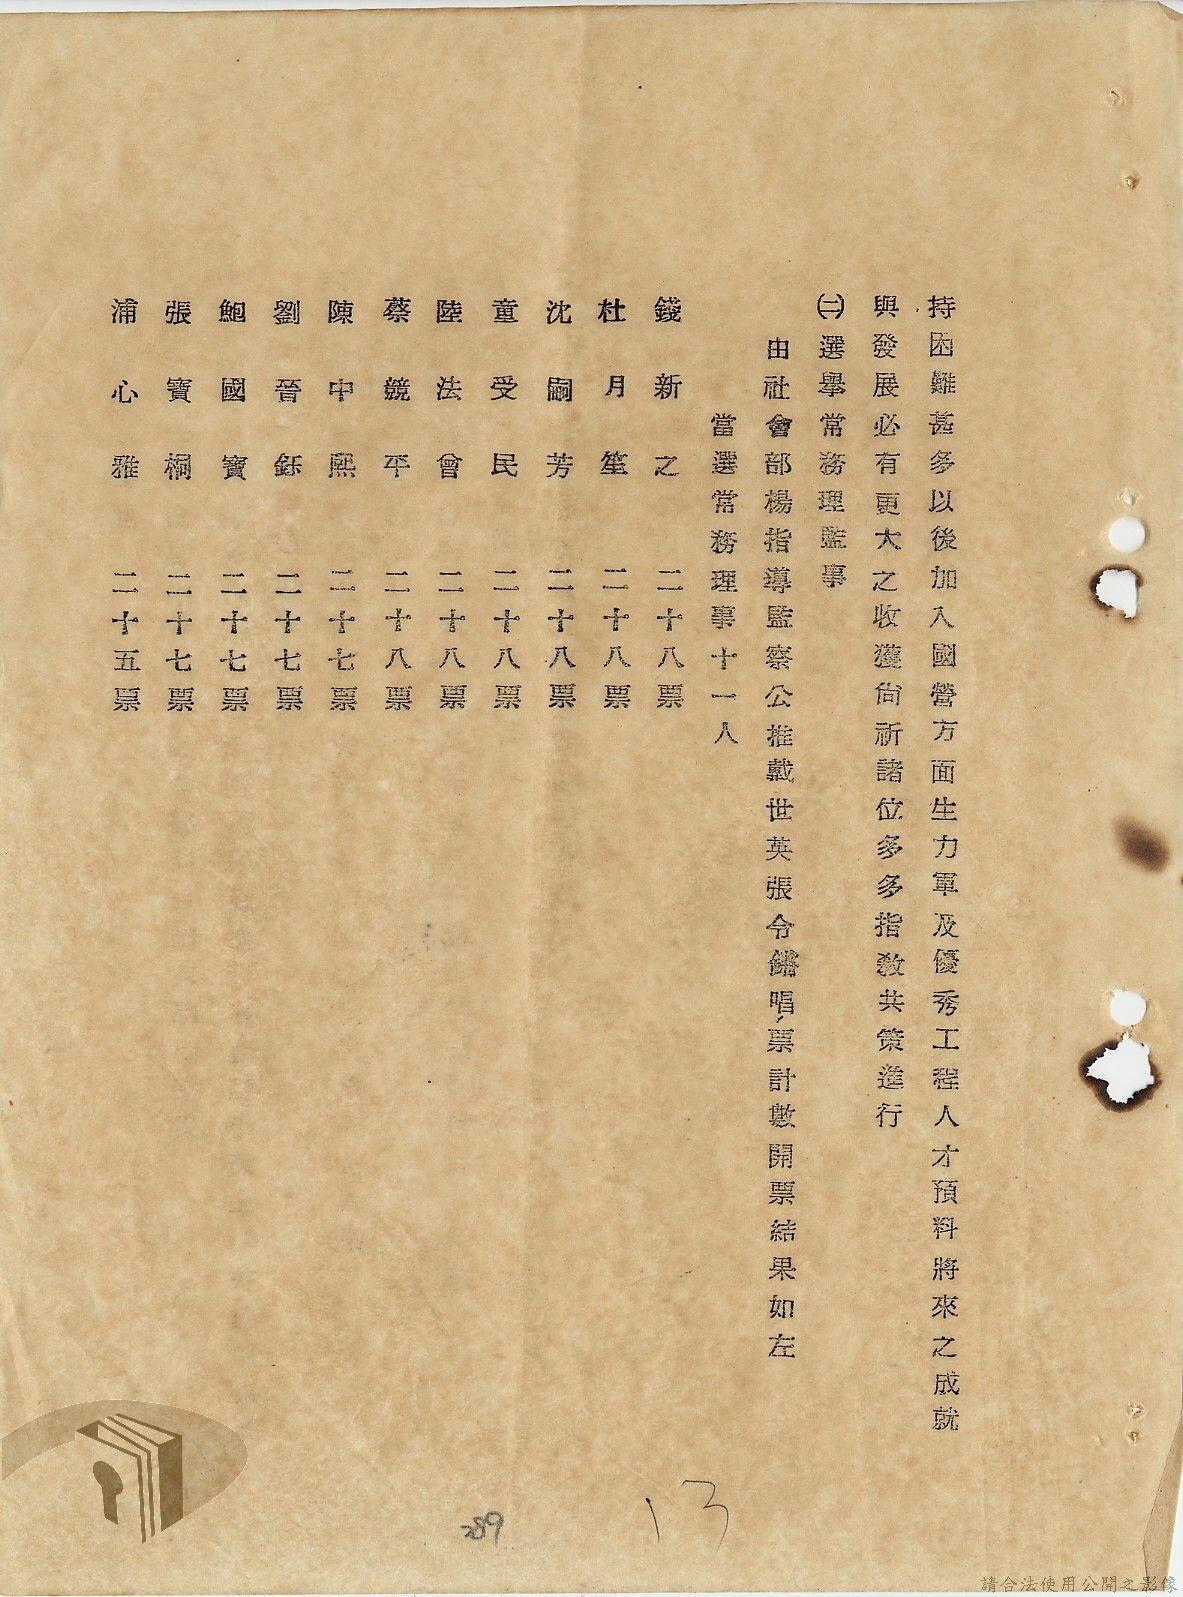 持困難甚多以後加入國營方面生力軍及優秀工程人才預料將來之成就
與發展必有更大之收獲尙祈諸位多多指敎共策進行
㈡選舉常務理監事
由社會部楊指導監察公推戴世英張令鏘唱票計數開票結果如左
當選常務理事十一人
錢新之 二十八票
杜月笙 二十八票
沈嗣芳 二十八票
童受民 二十八票
陸法曾 二十八票
蔡競平 二十八票
陳中熙 二十七票
劉晉鈺 二十七票
鮑國寶 二十七票
張寶桐 二十七票
浦心雅 二十五票
13
289
請合法使用公開之影像